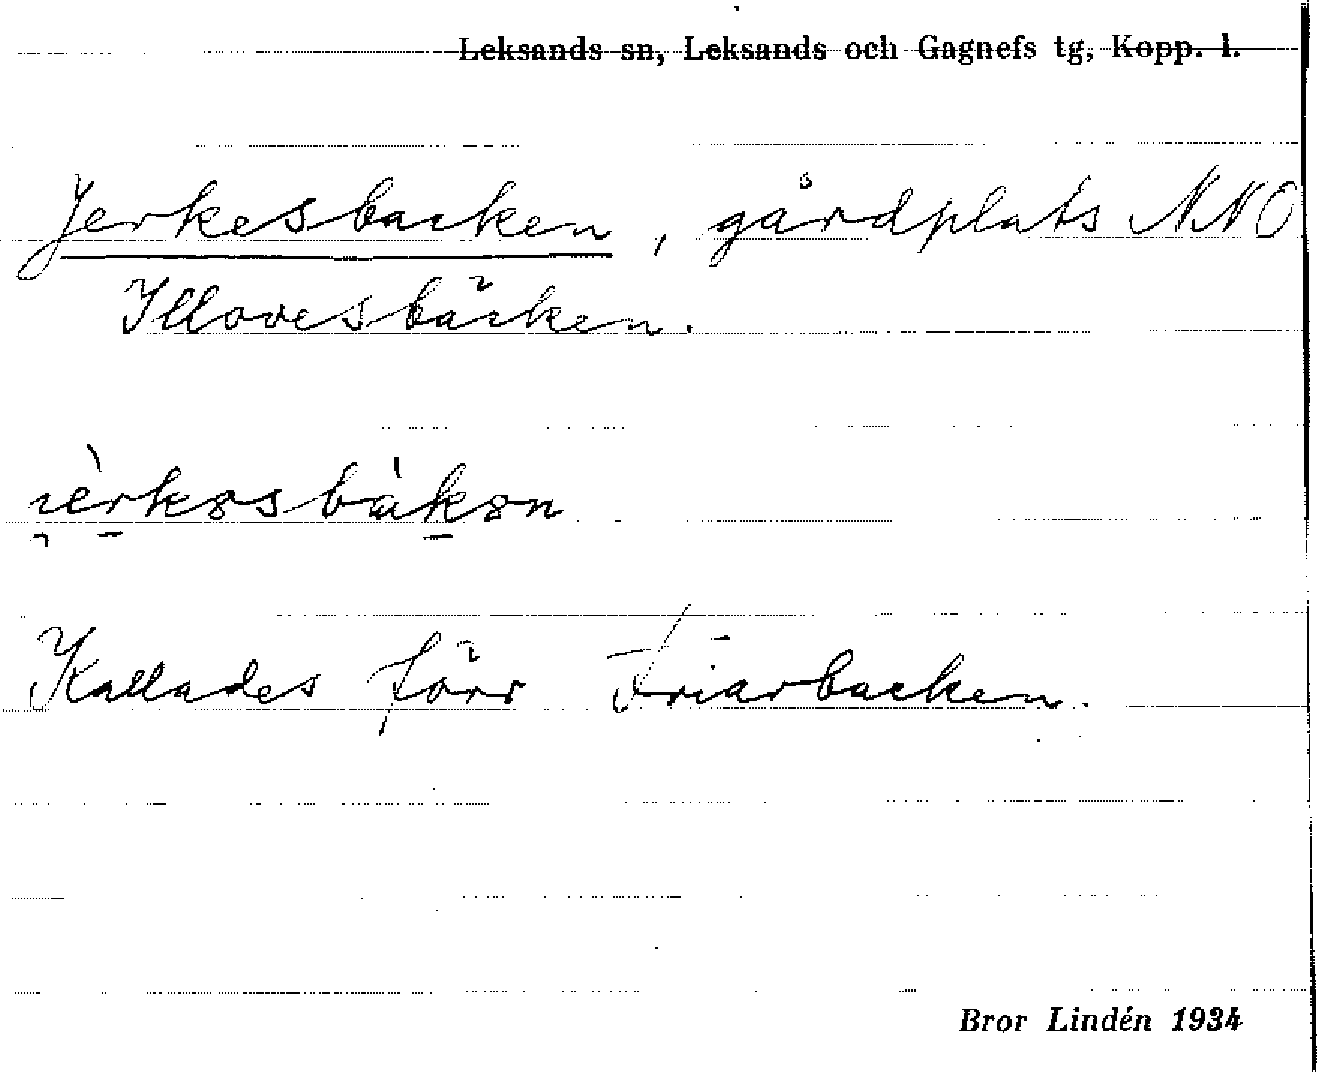 Leksands sn, Leksands och Gagnefs tg, Kopp. l.
Jerkesbacken, gårdplats NNO
Illovesbäcken.
Kallades förr Friarbacken.
Bror Lindén 1934